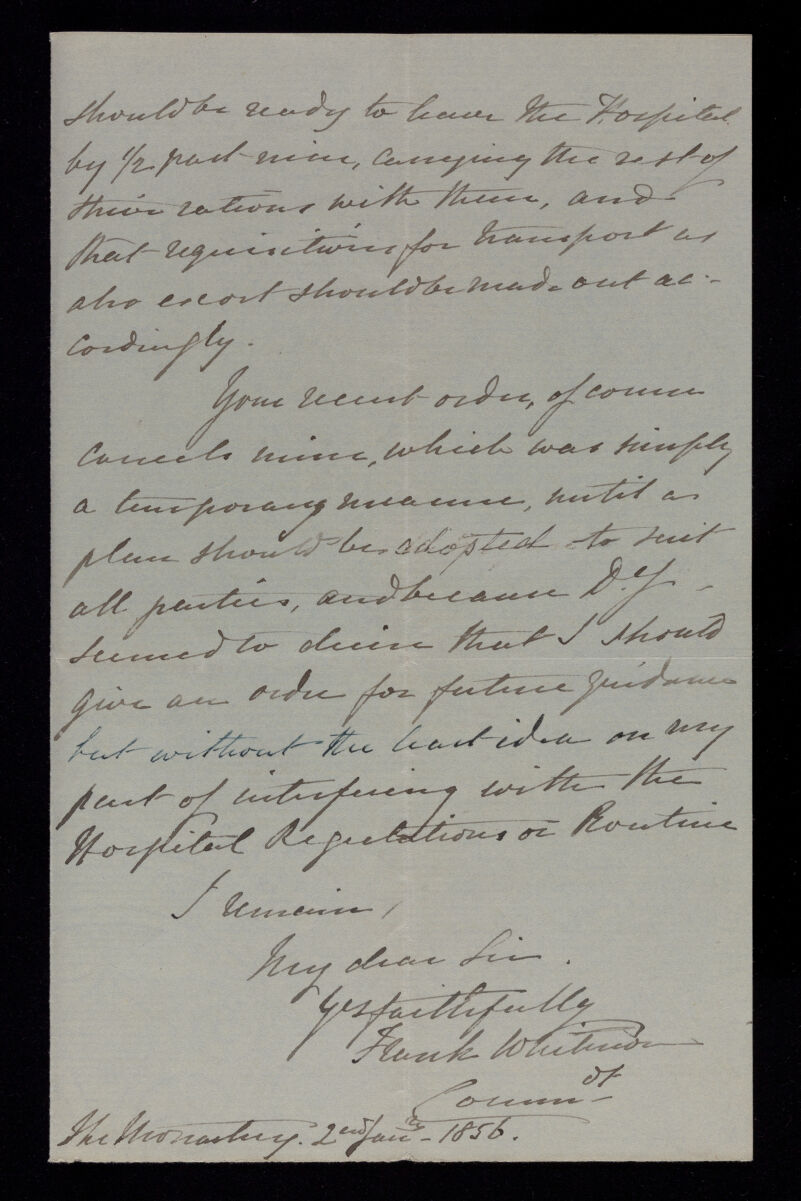 should be ready to leave the Hospital
by 1/2 past nine, carrying the rest of
their rations with them, and
that requisitions for transport as
also escort should be made out ac-
cordingly.
Your recent order, of course
cancels mine, which was simply
a temporary measure, until a
plan should be adopted to suit
all parties, and because Dr
seemed to desire that I should
give an order for future guidance
but without the least idea on my
part of interfering with the
Hospital Regulations or Routine
I remain,
My dear Sir.
Yrs faithfully
Frank
Commdt
The Monastery. 2nd Jany - 1856.